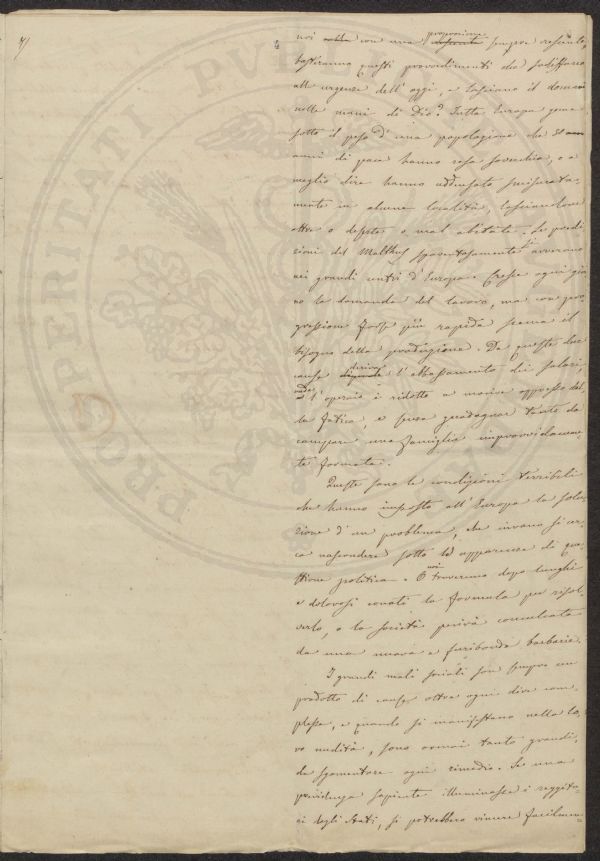 7/
noi con una proporzione sempre crescente,
basteranno questi provvedimenti che soddisfano
alle urgenze dell'oggi, e lasciano il domani
nelle mani di Dio? Tutta Europa geme
sotto il peso d'una popolazione che 30
anni di pace hanno resa soverchia, o a
meglio dire hanno addensato smisurata-
mente in alcune località, lasciandone
altre o deserte o mal abitate. Le predi
zioni del Malthus spaventosamente si avverano
nei grandi centri d'Europa. Cresce ogni gior
no la domanda del lavoro, ma con pro
gressione forse più rapida scema il
bisogno della produzione. Da queste due
cause deriva l'abbassamento dei salari,
l'operaio è ridotto a morire oppresso dal
la fatica, e senza guadagnar tanto da
campare una famiglia improvvidamen
te formata.
Queste sono le condizioni terribili
che hanno imposto all'Europa la solu
zione d'un problema, che invano si cer
ca nascondere sotto le apparenze di que
stione politica. O noi troveremo dopo lunghi
e dolorosi conati la formula per risol
verlo, o la società perirà consumata
da una nuova e furibonda barbarie.
I grandi mali sociali son sempre un
prodotto di cause oltre ogni dire com
plesse, e quando si manifestano nella lo
ro nudità, sono ormai tanto grandi,
da sgomentare ogni rimedio. Se una
previdenza sapiente illuminasse i reggito
ri degli Stati, si potrebbero vincere facilmen
PROSPERITATI PUBLICAE